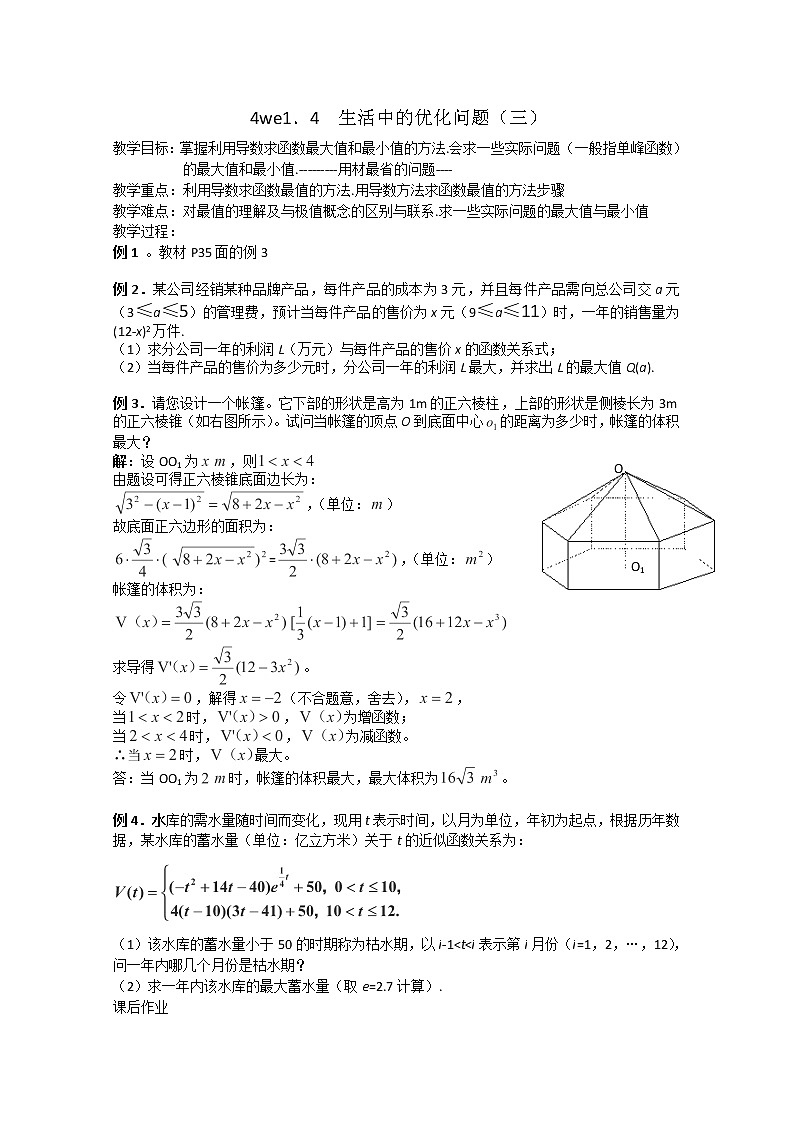 4we1．4　生活中的优化问题（三）
教学目标：掌握利用导数求函数最大值和最小值的方法.会求一些实际问题（一般指单峰函数）
的最大值和最小值.---------用材最省的问题----
教学重点：利用导数求函数最值的方法.用导数方法求函数最值的方法步骤
教学难点：对最值的理解及与极值概念的区别与联系.求一些实际问题的最大值与最小值
教学过程：
例1 。教材 P35 面的例 3
例 2．某公司经销某种品牌产品，每件产品的成本为 3 元，并且每件产品需向总公司交 a 元
（3≤a≤5）的管理费，预计当每件产品的售价为 x 元（9≤a≤11）时，一年的销售量为
(12-x)² 万件.
（1）求分公司一年的利润 L（万元）与每件产品的售价 x 的函数关系式；
（2）当每件产品的售价为多少元时，分公司一年的利润 L 最大，并求出 L 的最大值 Q(a).
例 3．请您设计一个帐篷。它下部的形状是高为 1m 的正六棱柱，上部的形状是侧棱长为 3m
的正六棱锥（如右图所示）。试问当帐篷的顶点 O 到底面中心 o₁ 的距离为多少时，帐篷的体积
最大？
解：设 OO₁ 为 x m，则 1 < x < 4
由题设可得正六棱锥底面边长为：
√(3² − (x−1)²) = √(8 + 2x − x²)，（单位：m）
故底面正六边形的面积为：
6·(√3/4)·(√(8 + 2x − x²))² = (3√3/2)·(8 + 2x − x²)，（单位：m²）
帐篷的体积为：
V（x）= (3√3/2)(8 + 2x − x²)[(1/3)(x−1)+1] = (√3/2)(16 + 12x − x³)
求导得 V'（x）= (√3/2)(12 − 3x²)。
令 V'（x）= 0，解得 x = −2（不合题意，舍去），x = 2，
当 1 < x < 2 时，V'（x）> 0，V（x）为增函数；
当 2 < x < 4 时，V'（x）< 0，V（x）为减函数。
∴当 x = 2 时，V（x）最大。
答：当 OO₁ 为 2 m 时，帐篷的体积最大，最大体积为 16√3 m³。
O
O₁
例 4．水库的需水量随时间而变化，现用 t 表示时间，以月为单位，年初为起点，根据历年数
据，某水库的蓄水量（单位：亿立方米）关于 t 的近似函数关系为：
V(t) = { (−t² + 14t − 40)e^(1/4 t) + 50, 0 < t ≤ 10,
4(t − 10)(3t − 41) + 50, 10 < t ≤ 12.
（1）该水库的蓄水量小于 50 的时期称为枯水期，以 i-1<t<i 表示第 i 月份（i=1，2，…，12），
问一年内哪几个月份是枯水期？
（2）求一年内该水库的最大蓄水量（取 e=2.7 计算）.
课后作业